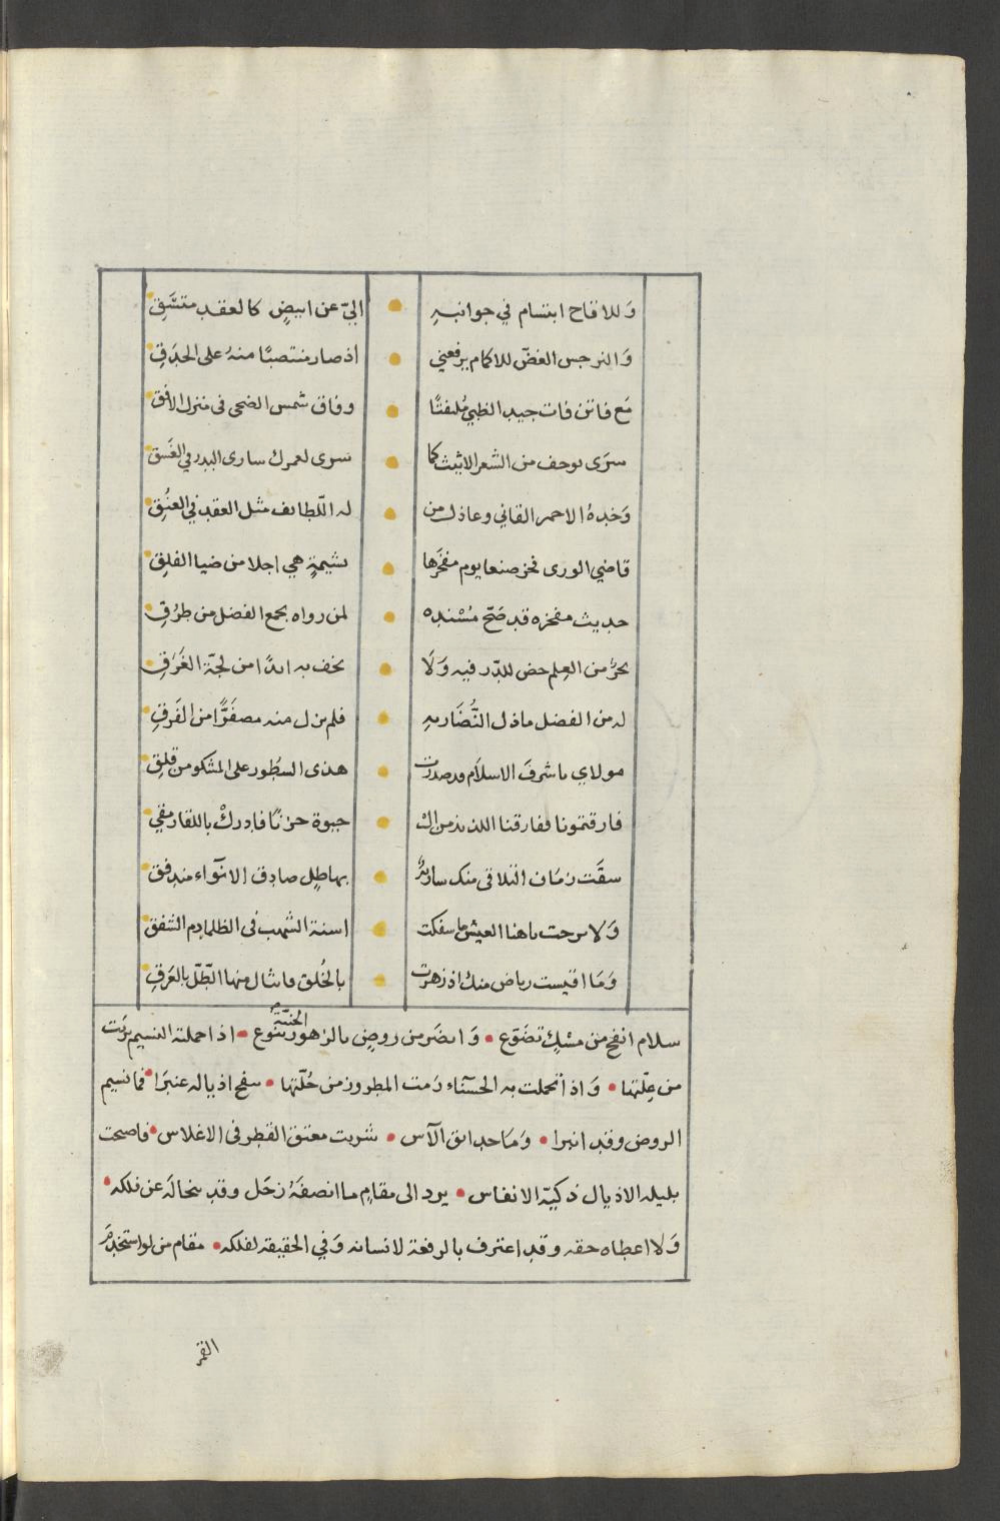 وَللاقاح ابتسام في جوانبهِ • اليّ عن ابيضٍ كالعقد متسَّقِ
وَالنرجس الغضّ للاكمام يرفعني • اذ صار منتصبًا منهُ على الحدَقِ
مَع فاتن فات جيد الظبي مُلتفتًا • وفاق شمس الضحى في منزل الافق
سرَى بوحف من الشعر الاثيث كما • سوى لعمرك سارى البدر في الغَسَق
وَخدهُ الاحمر القاني وعاذل من • له اللّطايف مثل العقد في العنُقِ
قاضي الورى فخر صنعا يوم مفخَرها • بشيمةٍ هي اجلا من ضيا الفلقِ
حديث مفخره قد صَحّ مُسْنده • لمن رواه بجمع الفضل من طرُقِ
بحرٌ من العِلم خض للدّر فيه وَلَا • تخف به ابدًا من لجّة الغَرَقِ
له من الفضل ما ذل النُّضَار بهِ • فلم يزل منه مصفَرًّا من الفَرَقِ
مولاي يا شرفَ الاسلَام قد صدرت • هذى السطُور على المشكو من قلقِ
فارقتمونا ففارقنا اللذيذ من الـ • حيوة حزنًا فادركْ باللقا رمقي
سقَت زمَان التلاقى منك ساريةٌ • بهاطلٍ صادق الانوَآء مندفق
وَلا برحت باهنا العيش ما سفكت • اسنة الشهب فى الظلما دم الشفق
وَمَا اقيست رياض منك اذ زهرت • بالخُلق فانثال منها الطّلّ بالعَرَقِ
سلام انفح من مسْكٍ تضَوّع • وَانضَر من روضٍ بالزهور الجَنيَّة تنوع • اذا حملته النسيم برَئت
من عِلّتها • وَاذا تحملت به الحسنَاء رَمت المطروز من حُلّتها • سفح اذياله عنبرَا • فما نسيم
الروض وقد انبرا • وَمَا حدائق الآس • شربت معتق القطر فى الاغلاس • فاصبحت
بليله الاذيال ذكيّة الانفاس • يرد الى مقامٍ ما انصفَهُ زحَل وقد تنحا لَه عن فلكه •
وَلا اعطاه حقه وقد اعترف بالرفعة لانسانه وَفي الحقيقه لفلكه • مقام من لو استخدمَ
القمر